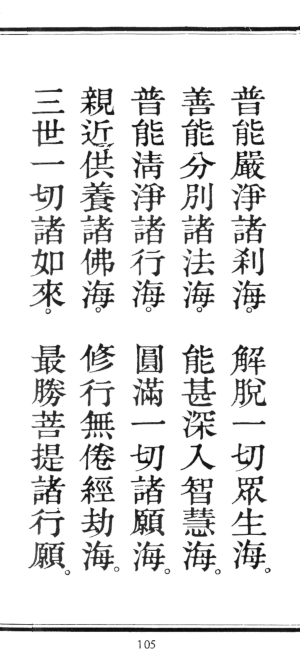 普能嚴淨諸剎海。解脫一切眾生海。
善能分別諸法海。能甚深入智慧海。
普能清淨諸行海。圓滿一切諸願海。
親近供養諸佛海。修行無倦經劫海。
三世一切諸如來。最勝菩提諸行願。
105